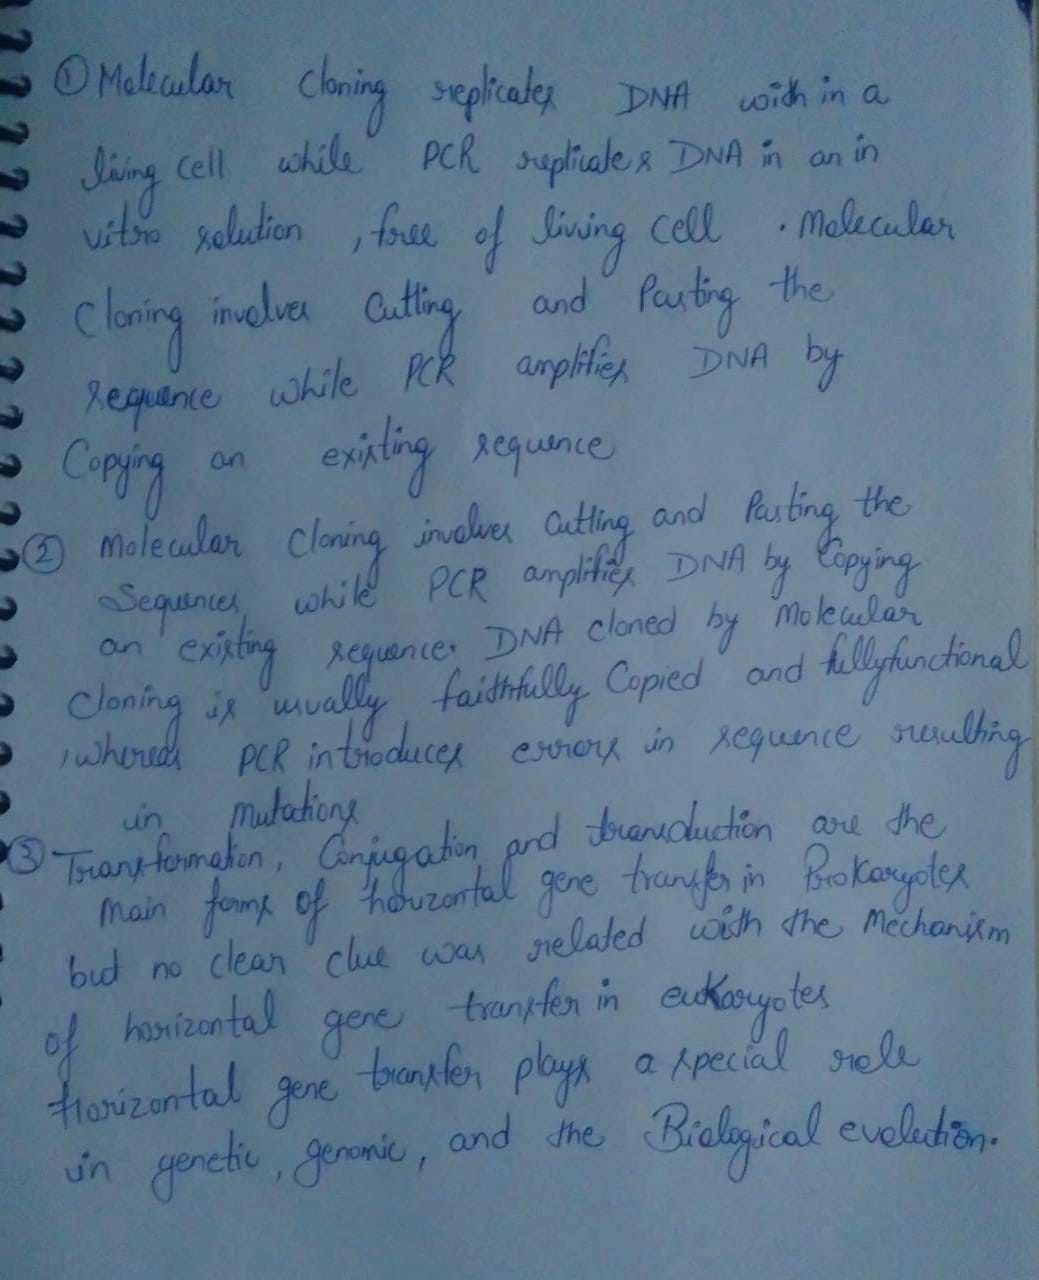 ① Molecular Cloning replicates DNA with in a
living cell while PCR replicates DNA in an in
vitro solution , free of living cell . Molecular
Cloning involves Cutting and Pasting the
sequence while PCR amplifies DNA by
Copying an existing sequence
② Molecular Cloning involves Cutting and Pasting the
Sequences while PCR amplifies DNA by Copying
an existing sequence. DNA cloned by Molecular
Cloning is usually faithfully Copied and fullyfunctional
, whereas PCR introduces errors in sequence resulting
in mutations
③ Transformation, Conjugation and transduction are the
main forms of horizontal gene transfer in Prokaryotes
but no clear clue was related with the Mechanism
of horizontal gene transfer in eukaryotes
Horizontal gene transfer plays a special role
in genetic, genomic, and the Biological evolution.